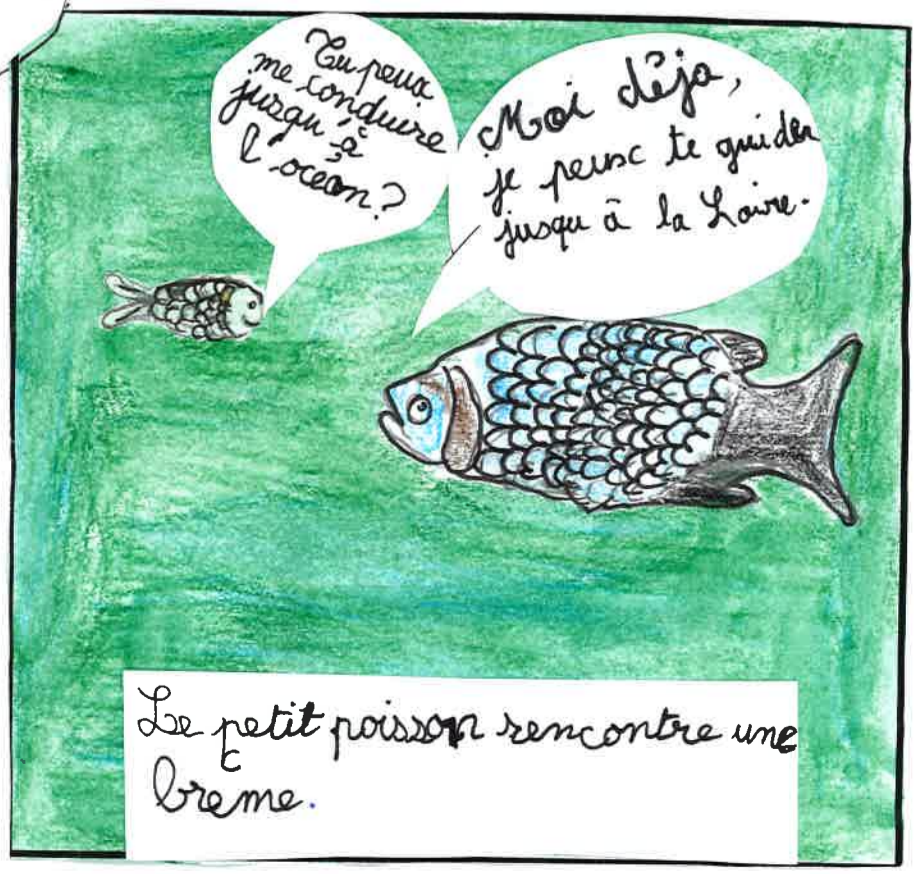 Tu peux
me conduire
jusqu'à
l'océan?
Moi déja,
je peux te guider
jusqu'à la Loire.
Le petit poisson rencontre une
breme.